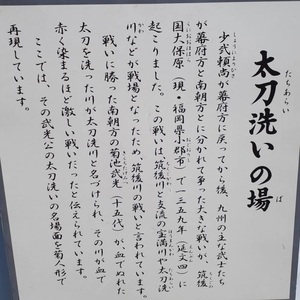 太刀洗いの場
たちあらい ば
少武頼尚が幕府方に戻ってから後、九州の主な武士たち
が幕府方と南朝方とに分かれて争った大きな戦いが、筑後
国大保原（現・福岡県小郡市）で一三五九（延文四）に
起こりました。この戦いは、筑後川と支流の宝満川や太刀洗
川などが戦場となったため、筑後川の戦いと言われています。
戦いに勝った南朝方の菊池武光（十五代）が、血でぬれた
太刀を洗った川が太刀洗川と名づけられ、その川が血で
赤く染まるほど激しい戦いだったと伝えられています。
ここでは、その武光公の太刀洗いの名場面を菊人形で
再現しています。